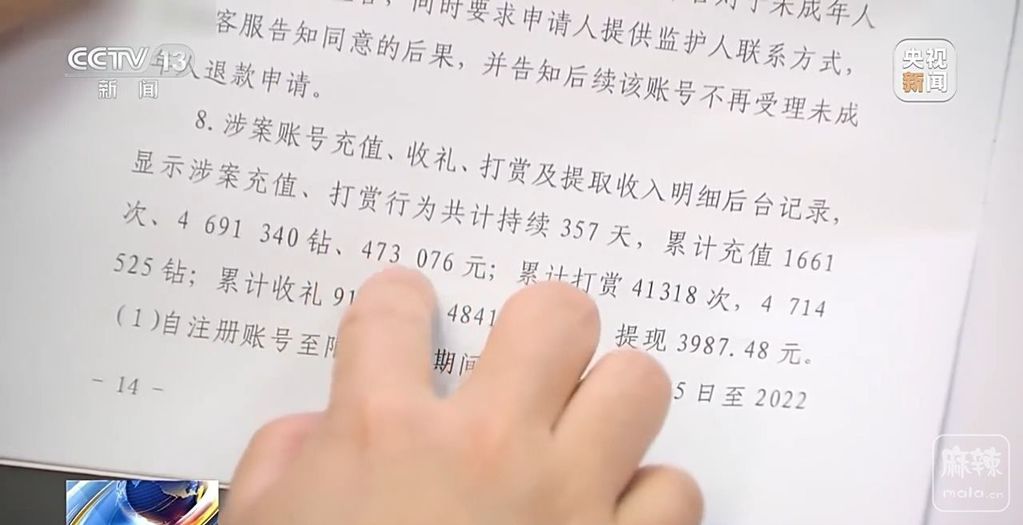 CCTV 13
新闻
央视
新闻
同时要求申请人提供监护人联系方式，
客服告知同意的后果，并告知后续该账号不再受理未成
年人退款申请。
8. 涉案账号充值、收礼、打赏及提取收入明细后台记录，
显示涉案充值、打赏行为共计持续 357 天，累计充值 1661
次、4 691 340 钻、473 076 元；累计打赏 41318 次，4 714
525 钻；累计收礼 91 4841 提现 3987.48 元。
(1)自注册账号至 期间 5 日至 2022
- 14 -
麻辣
mala.cn